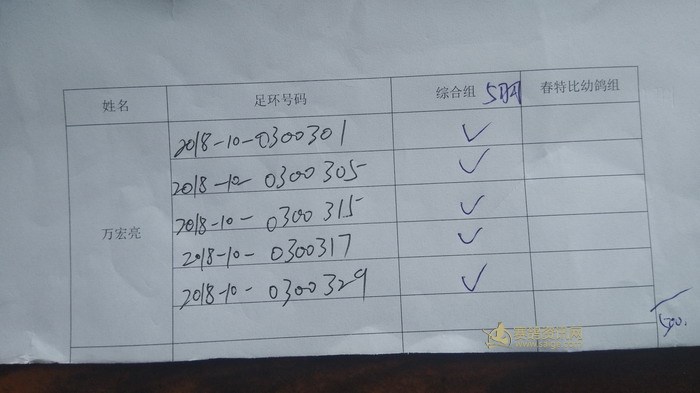 姓名 足环号码 综合组 5羽 春特比幼鸽组
2018-10-0300301 ✓
2018-10-0300305 ✓
万宏亮 2018-10-0300315 ✓
2018-10-0300317 ✓
2018-10-0300329 ✓